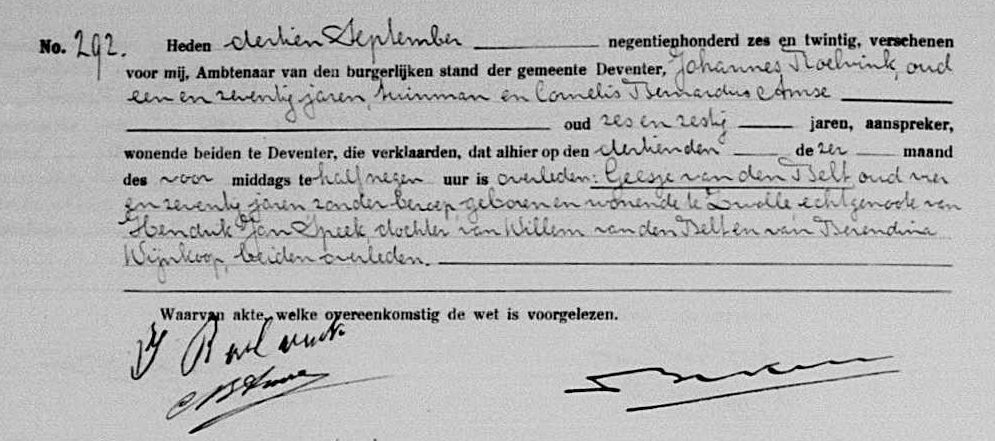 No. 292. Heden dertien September negentienhonderd zes en twintig, verschenen
voor mij, Ambtenaar van den burgerlijken stand der gemeente Deventer, Johannes Roelvink, oud
een en zeventig jaren, tuinman en Cornelis Bernardus Amse
oud zes en zestig jaren, aanspreker,
wonende beiden te Deventer, die verklaarden, dat alhier op den dertienden de zer maand
des voor middags te half negen uur is overleden: Geesje van den Belt, oud vier
en zeventig jaren zonder beroep, geboren en wonende te Zwolle, echtgenoote van
Hendrik Jan Speek, dochter van Willem van den Belt en van Berendina
Wijnkoop, beiden overleden.
Waarvan akte, welke overeenkomstig de wet is voorgelezen.
J Roelvink
CBAmse